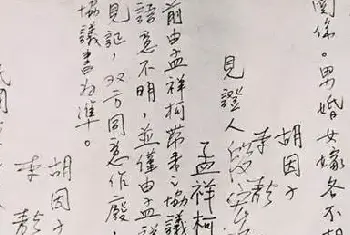 關係。男婚女嫁各不
胡因子
李敖
見證人
孟祥柯
前由孟祥柯帶來之協議
語意不明，並僅由孟祥
見証，双方同意作廢，
協議書為準。
胡因子
李敖
民國